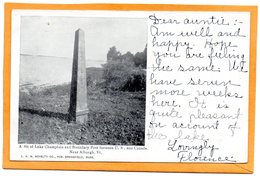 A bit of Lake Champlain and Boundary Post between U. S. and Canada.
Near Alburgh, Vt.
Dear auntie:-
Am well and
happy. Hope
you are feeling
the same. We
have seven
more weeks
here. It is
quite pleasant
on account of
this lake
Lovingly
Florence.